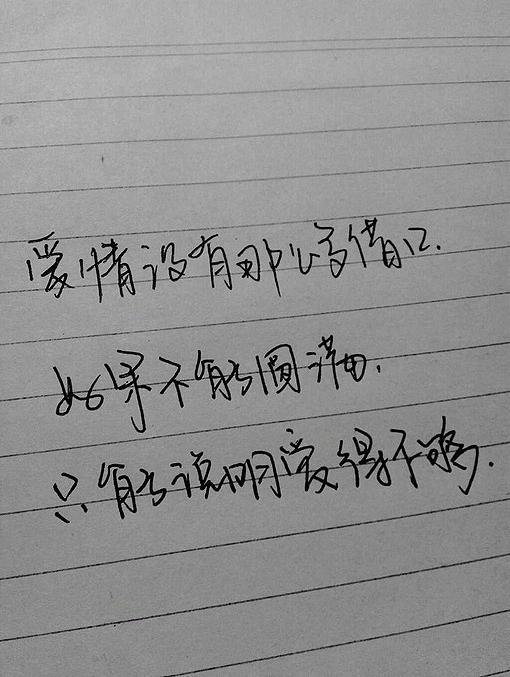 爱情没有那么多借口.
如果不能圆满.
只能说明爱得不够.